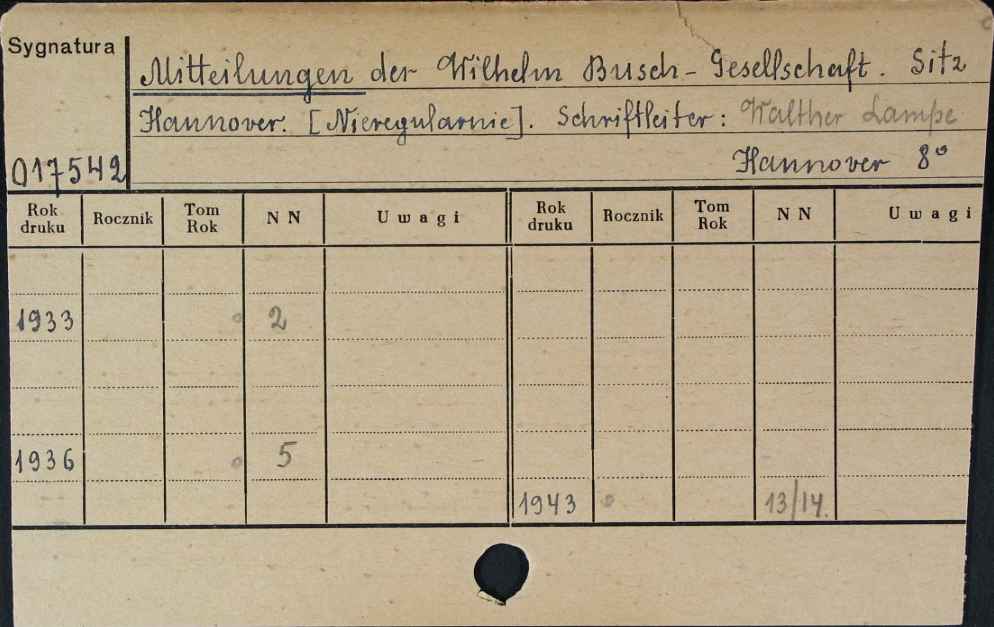 Sygnatura
Mitteilungen der Wilhelm Busch-Gesellschaft. Sitz
Hannover. [Nieregularnie]. Schriftleiter: Walther Lampe
017542 Hannover 8°
Rok druku Rocznik Tom Rok N N Uwagi Rok druku Rocznik Tom Rok N N Uwagi
1933 2
1936 5
1943 13/14.